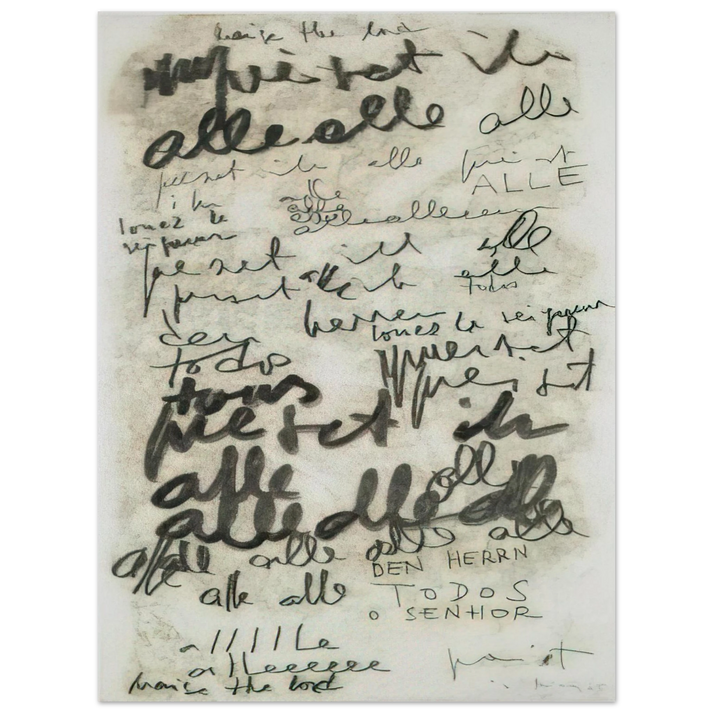 praise the lord
preiset ihn
alle alle alle
preiset ihn alle preiset
ALLE
ihn alle
alle
louez le alle alleeeeee
seigneur
preiset ihn alle
preiset alle ihn alle
todos
herrn louez le seigneur
den preiset
todos preiset
tous
preiset ihn
alle alle
alle alle alle
alle alle alle alle
DEN HERRN
alle alle TODOS
O SENHOR
a/////le
alleeeeeee preiset
praise the lord